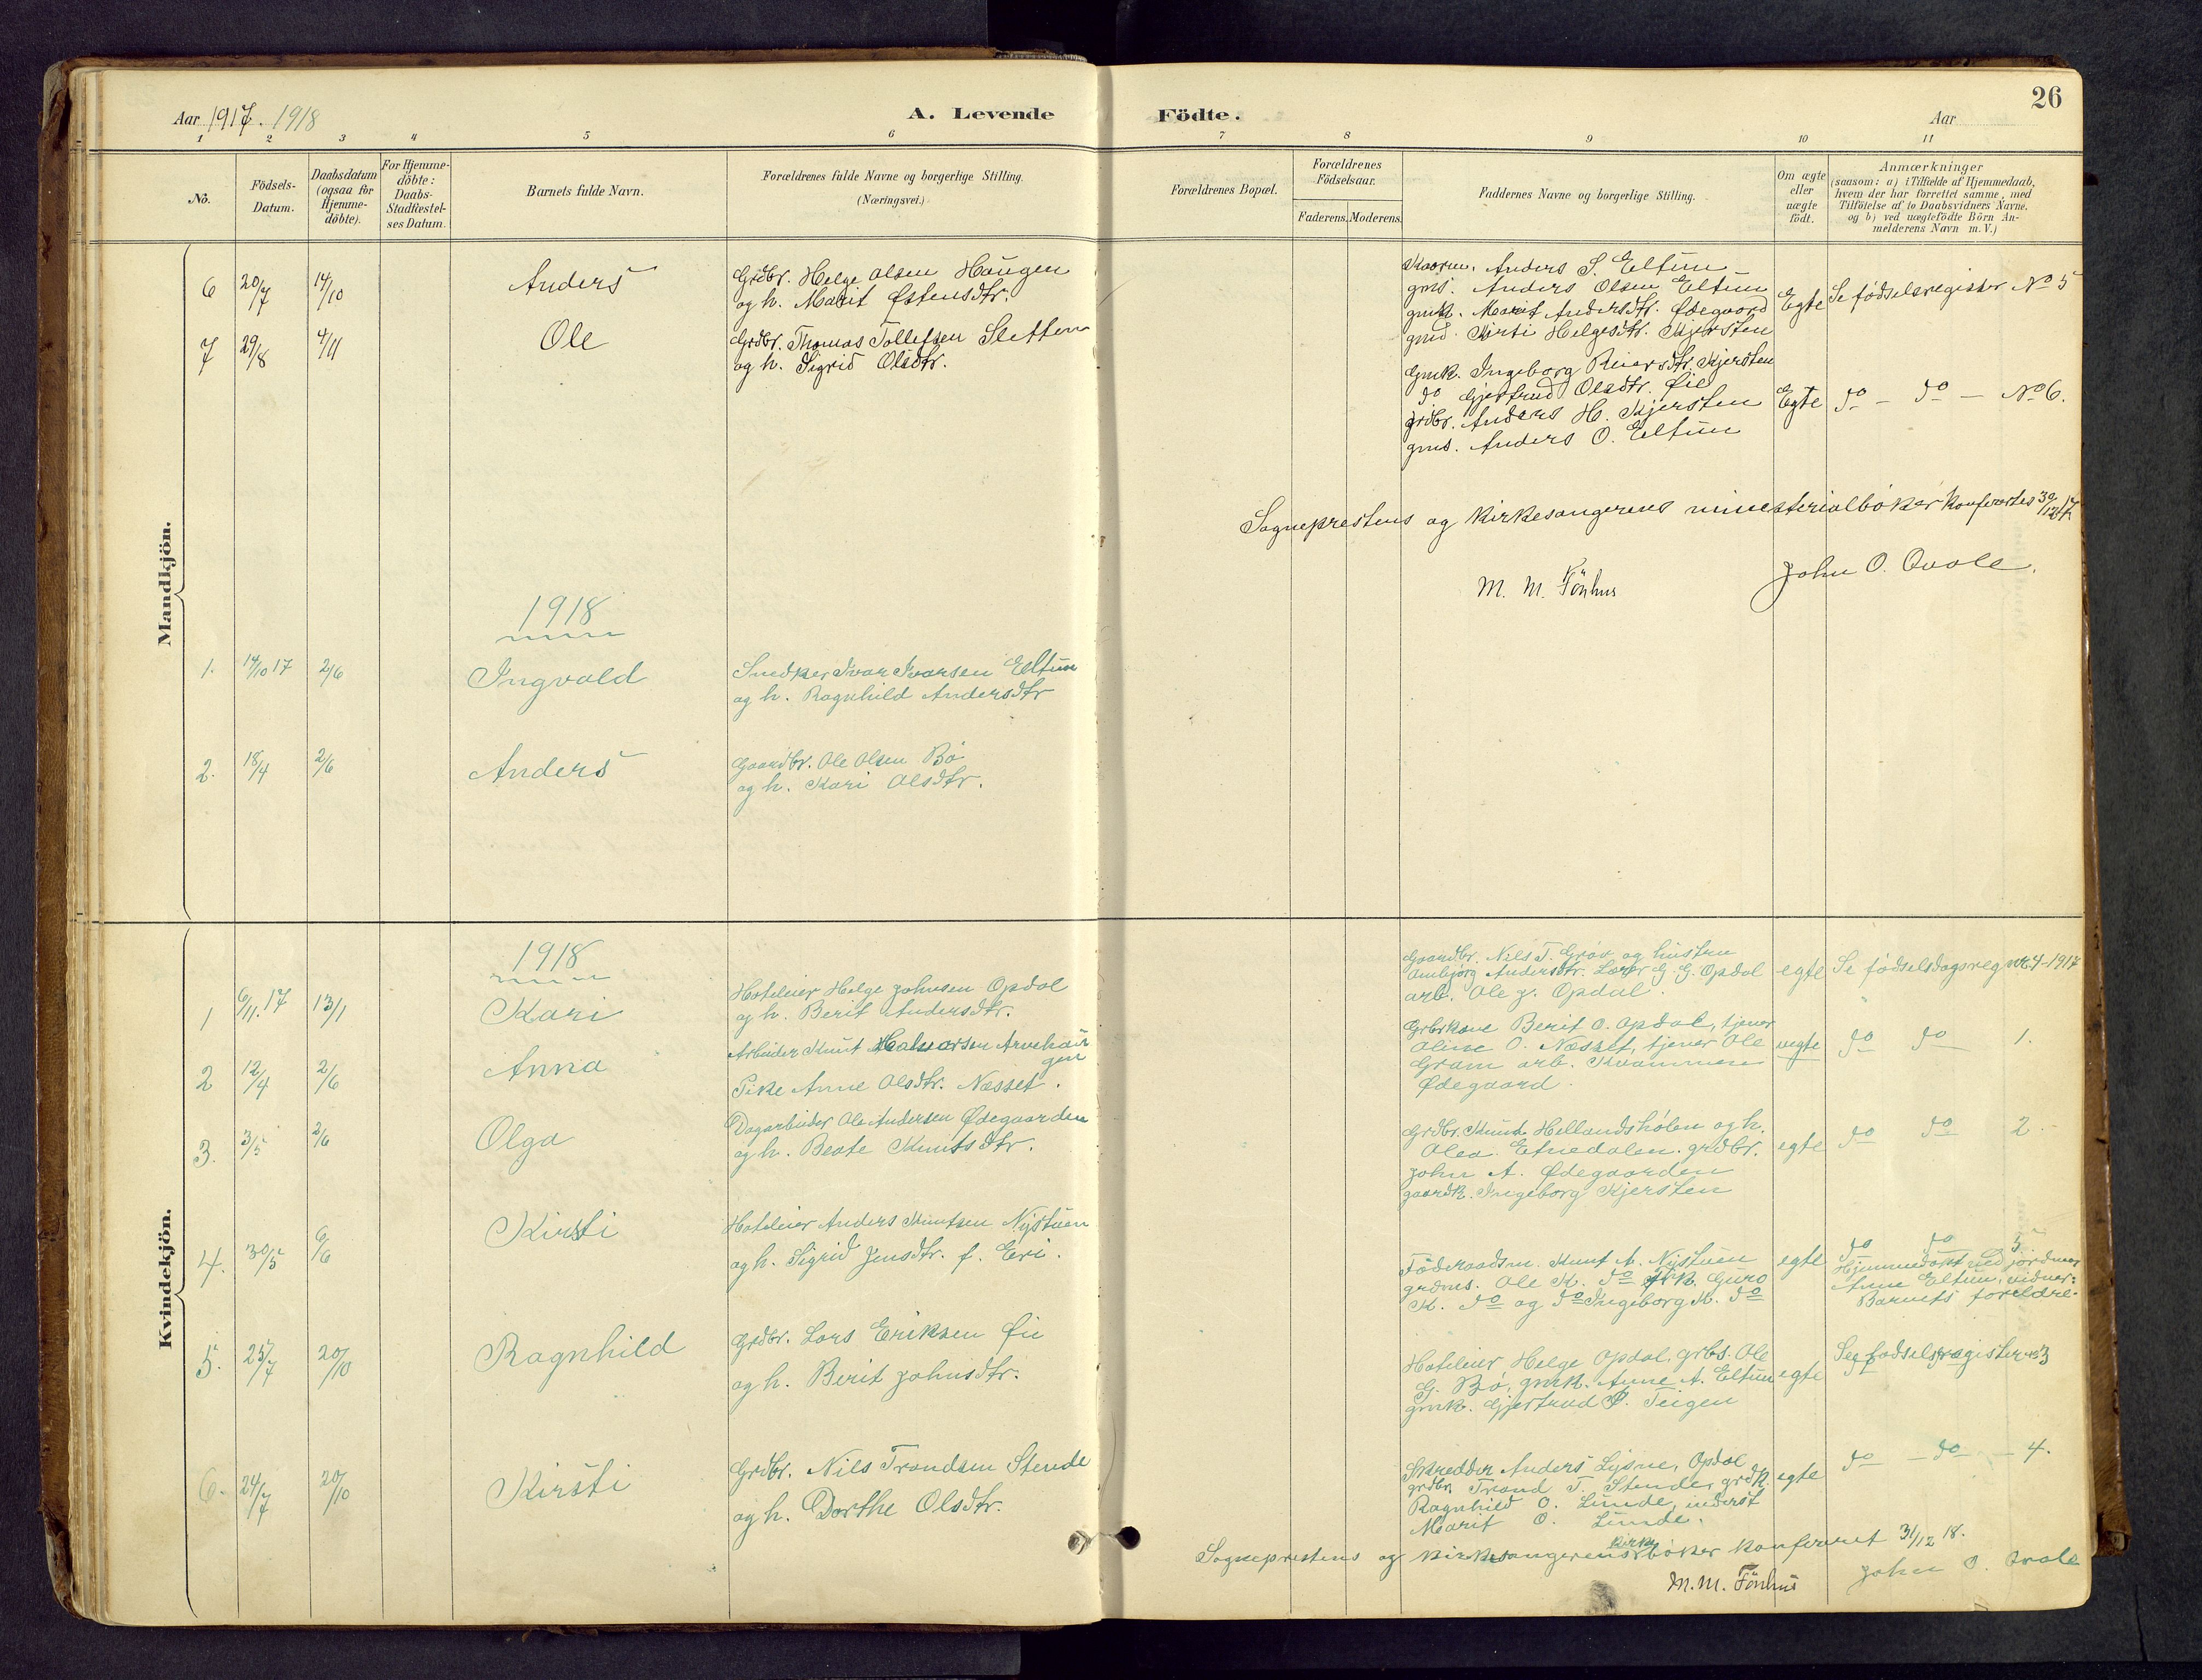 Aar 1917. 1918
A. Levende
Födte.
Aar
26
1 2 3 4 5 6 7 8 9 10 11
No.
Födsels-
Datum.
Daabsdatum
(ogsaa for
Hjemme-
döbte).
For Hjemme-
döbte:
Daabs-
Stadfæstel-
ses Datum.
Barnets fulde Navn.
Forældrenes fulde Navne og borgerlige Stilling.
(Næringsvei.)
Forældrenes Bopæl.
Forældrenes
Födselsaar.
Faderens. Moderens.
Faddernes Navne og borgerlige Stilling.
Om ægte
eller
uægte
födt.
Anmærkninger
(saasom: a) i Tilfælde af Hjemmedaab,
hvem der har forrettet samme, med
Tilföielse af to Daabsvidners Navne.
og b) ved uægtefödte Börn An-
melderens Navn m. V.)
Mandkjön.
6 20/7 14/10 Anders
Grdbr. Helge Olsen Haugen
og h. Marit Østensdtr.
Anders S. Eltun
gms. Anders Olsen Eltun
gmk. Marit Andersdtr. Ødegaard
gmd. Kirti Helgesdtr. Kjersten
Egte
Se födselsregister No 5
7 29/8 4/11 Ole
Grdbr. Thomas Tollefsen Sletten
og h. Sigrid Olsdtr.
Gmk. Ingeborg Reiersdtr. Kjersten
do Gjertrud Olsdtr. Øie
grdbr. Anders H. Kjersten
gms. Anders O. Eltun
Egte
do - do - No 6.
Sogneprestens og Kirkesangerens minesterialbøker konfertes 30/12 17
M. M. Fönhus
John O. Qvale.
1918
1. 14/10 17 2/6 Ingvald
Snedker Ivar Ivarsen Eltun
og h. Ragnhild Andersdtr
2. 18/4 2/6 Anders
Gaardbr. Ole Olsen Bø
og h. Kari Olsdtr.
Kvindekjön.
1918
1 6/11. 17 13/1 Kari
Hoteleier Helge Johnsen Opdal
og h. Berit Andersdtr.
Gaardbr. Nils T. Grøv og hustru
Ambjørg Andersdtr. Lærer G. G. Opdal
arb. Ole J. Opdal.
egte
Se födselsdagsreg nr. 4-1917
2 12/4 2/6 Anna
Arbeider Knut Halvorsen Arvehau
gen
Pike Anne Olsdtr. Nesset.
Grbrkone Berit O. Opdal, tjener
Oline O. Nesset, tjener Ole
Gram arb. Kvammen
Ødegaard.
uegte
do do 1.
3. 3/5 2/6 Olga
Dagarbeider Ole Andersen Ødegaarden
og h. Beate Knutsdtr.
Grdbr. Knut Hellandshølen og h.
Olea Etnedalen. grdbr.
John A. Ødegaarden
gaardk. Ingeborg Kjersten
egte
do do 2.
4. 30/5 6/6 Kirsti
Hoteleier Anders Knutsen Nystuen
og h. Sigrid Jensdtr. f. Eri.
Föderaadsm. Knut A. Nystuen
grdms. Ole K. do frk. Guro
K. do og do Ingeborg K. do
egte
do do 5.
Hjemmedöpt ved jordmor
Anne Eltun, vidner:
Barnets foreldre.
5. 25/7 20/10 Ragnhild
Grdbr. Lars Eriksen Øie
og h. Berit Johnsdtr.
Hoteleier Helge Opdal, grbs. Ole
G. Bø, gmk. Anne A. Eltun
gmk. Gjertrud P. Teigen
egte
See fødselsregister 3
6. 24/7 20/10 Kirsti
Grdbr. Nils Trondsen Stende
og h. Dorthe Olsdtr.
Skredder Anders Lysne, Opdal
grdbr. Trond T. Stende, grdk.
Ragnhild O. Linde, inderst
Marit O. Linde.
egte
do - do - 4.
Sogneprestens og kirkesangerens kirkebøker konferert 31/12 18.
M. M. Fönhus
John O. Qvale